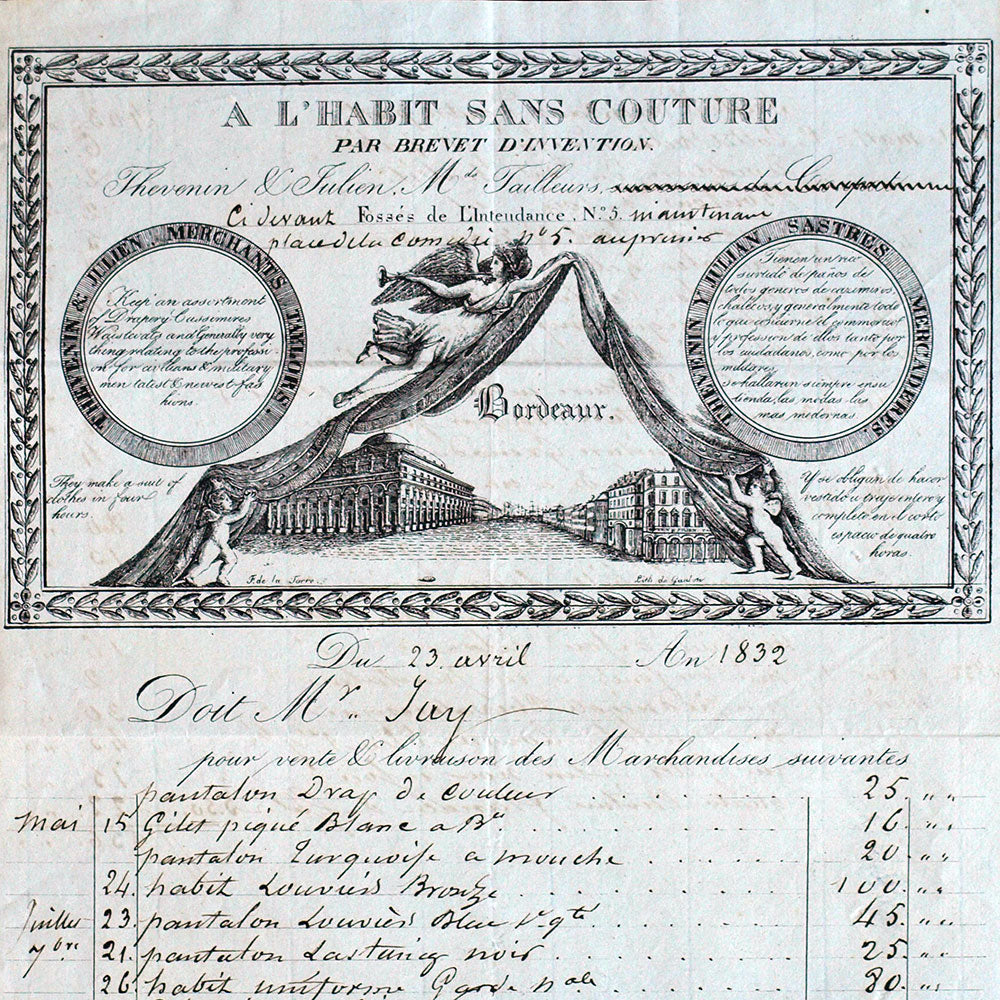 A L'HABIT SANS COUTURE
PAR BREVET D'INVENTION.
Thevenin & Julien, Mds Tailleurs,
Ci devant Fossés de L'Intendance, No. 5. maintenant
place de la Comedie No 5. au premier
THEVENIN & JULIEN MERCHANTS TAILORS.
Keep an assortment
of Drapery Cassemires
Waistcoats and Generally very
theng relating to the professi-
on for civilians & military
men latest & newest fas
hions.
They make a suit of
clothes in four
hours.
THEVENIN Y JULIAN, SASTRES MERCADERES
Tienen un rico
surtido de paños de
todos generos de cazimiros,
chalecos, y generalmente todo
lo que concierne el commercio
y profession de ellos tanto por
los ciudadanos, como por los
militares
Se hallaran siempre en su
tienda, las modas las
mas modernas.
Y se obligan de hacer
vestido o traje entero y
completo en el corto
espacio de quatro
horas.
Bordeaux.
F. de la Torre.
Lith. de Gaulon
Du 23 avril An 1832
Doit Mr. Jay
pour vente & livraison des Marchandises suivantes
pantalon Drap de Couleur 25. " "
Mai 15 Gilet piqué Blanc a Bn. 16. " "
pantalon Turquoise a mouche 20. " "
24. habit Louviers Bronze 100. " "
Juillet 23. pantalon Louviers Bleu 1re qté 45. " "
7bre 21. pantalon Lasting noir 25. " "
26. habit uniforme Garde nale 80. " "